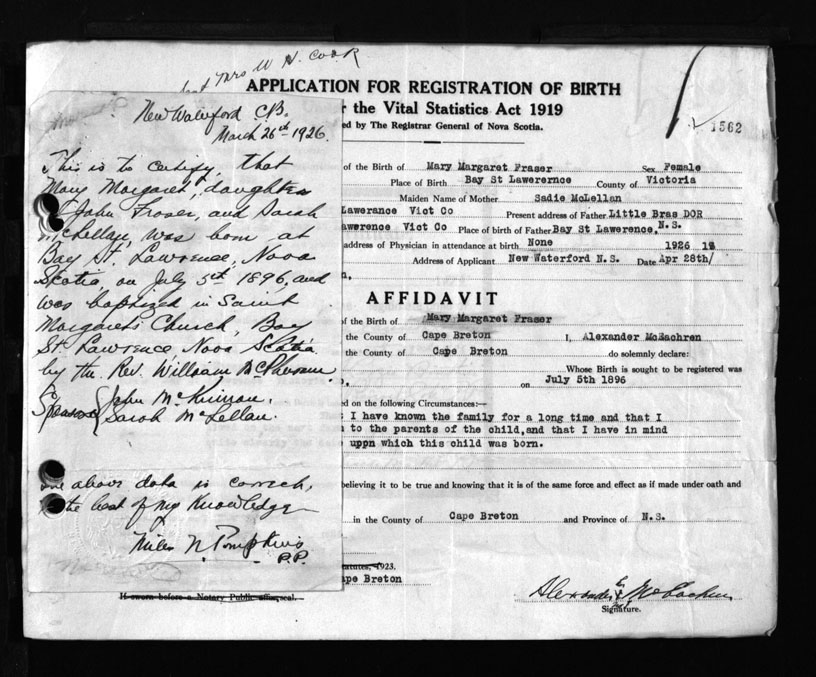 Mrs W H. Cook
APPLICATION FOR REGISTRATION OF BIRTH
r the Vital Statistics Act 1919
ed by The Registrar General of Nova Scotia.
1562
New Waterford C.B.
March 26th 1926.
This is to certify, that
Mary Margaret, daughter
John Fraser, and Sarah
McLellan, was born at
Bay St. Lawrence, Nova
Scotia, on July 5th 1896, and
was baptized in Saint
Margaret's Church, Bay
St. Lawrence Nova Scotia
by the Rev. William McPherson.
Sponsors John McKinnon.
Sarah McLellan.
above data is correct,
the best of my Knowledge
Miles N. Tompkins
P.P.
of the Birth of Mary Margaret Fraser Sex Female
Place of Birth Bay St Lawerernce County of Victoria
Maiden Name of Mother Sadie McLellan
Lawerance Vict Co Present address of Father Little Bras DOR
awerence Vict Co Place of birth of Father Bay St Lawrence, N.S.
address of Physician in attendance at birth None 1926 19
Address of Applicant New Waterford N.S. Date Apr 28th/
AFFIDAVIT
of the Birth of Mary Margaret Fraser
the county of Cape Breton I, Alexander McEachren
the County of Cape Breton do solemnly declare:
Whose Birth is sought to be registered was
on July 5th 1896
ed on the following Circumstances:—
I have known the family for a long time and that I
to the parents of the child,and that I have in mind
uppn which this child was born.
believing it to be true and knowing that it is of the same force and effect as if made under oath and
in the County of Cape Breton and Province of N.S.
tatutes, 1923.
ape Breton
If sworn before a Notary Public affix seal.
Alexander McEachren
Signature.